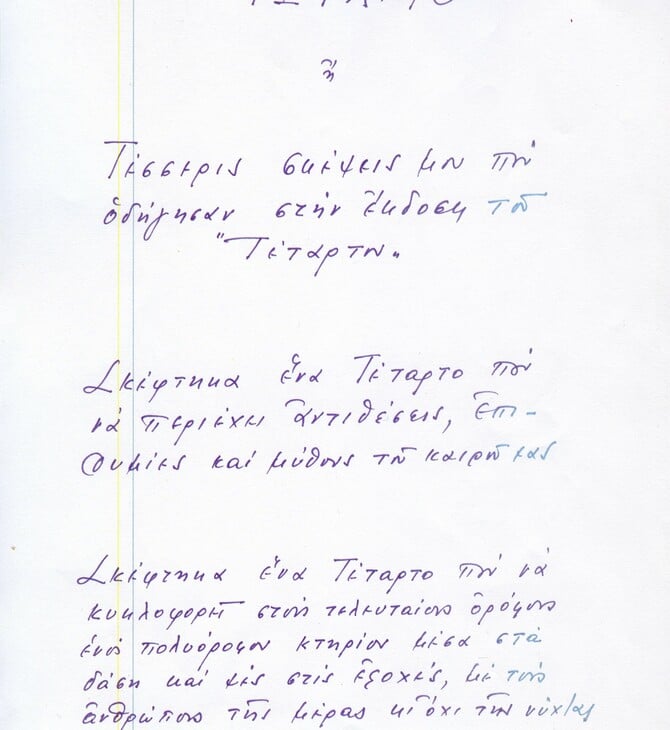 ἢ
Τέσσερις σκέψεις μου ποὺ
ὁδήγησαν στὴν ἔκδοση τοῦ
"Τέταρτου„
Σκέφτηκα ἕνα Τέταρτο ποὺ
νὰ περιέχει ἀντιθέσεις, ἐπι-
θυμίες καὶ μύθους τοῦ καιροῦ μας
Σκέφτηκα ἕνα Τέταρτο ποὺ νὰ
κυκλοφορεῖ στοὺς τελευταίους ὀρόφους
ἑνὸς πολυόροφου κτηρίου μέσα στὰ
δάση καὶ μὲς στὶς ἐξοχές, μὲ τοὺς
ἀνθρώπους τῆς μέρας κι ὄχι τῆς νύχτας